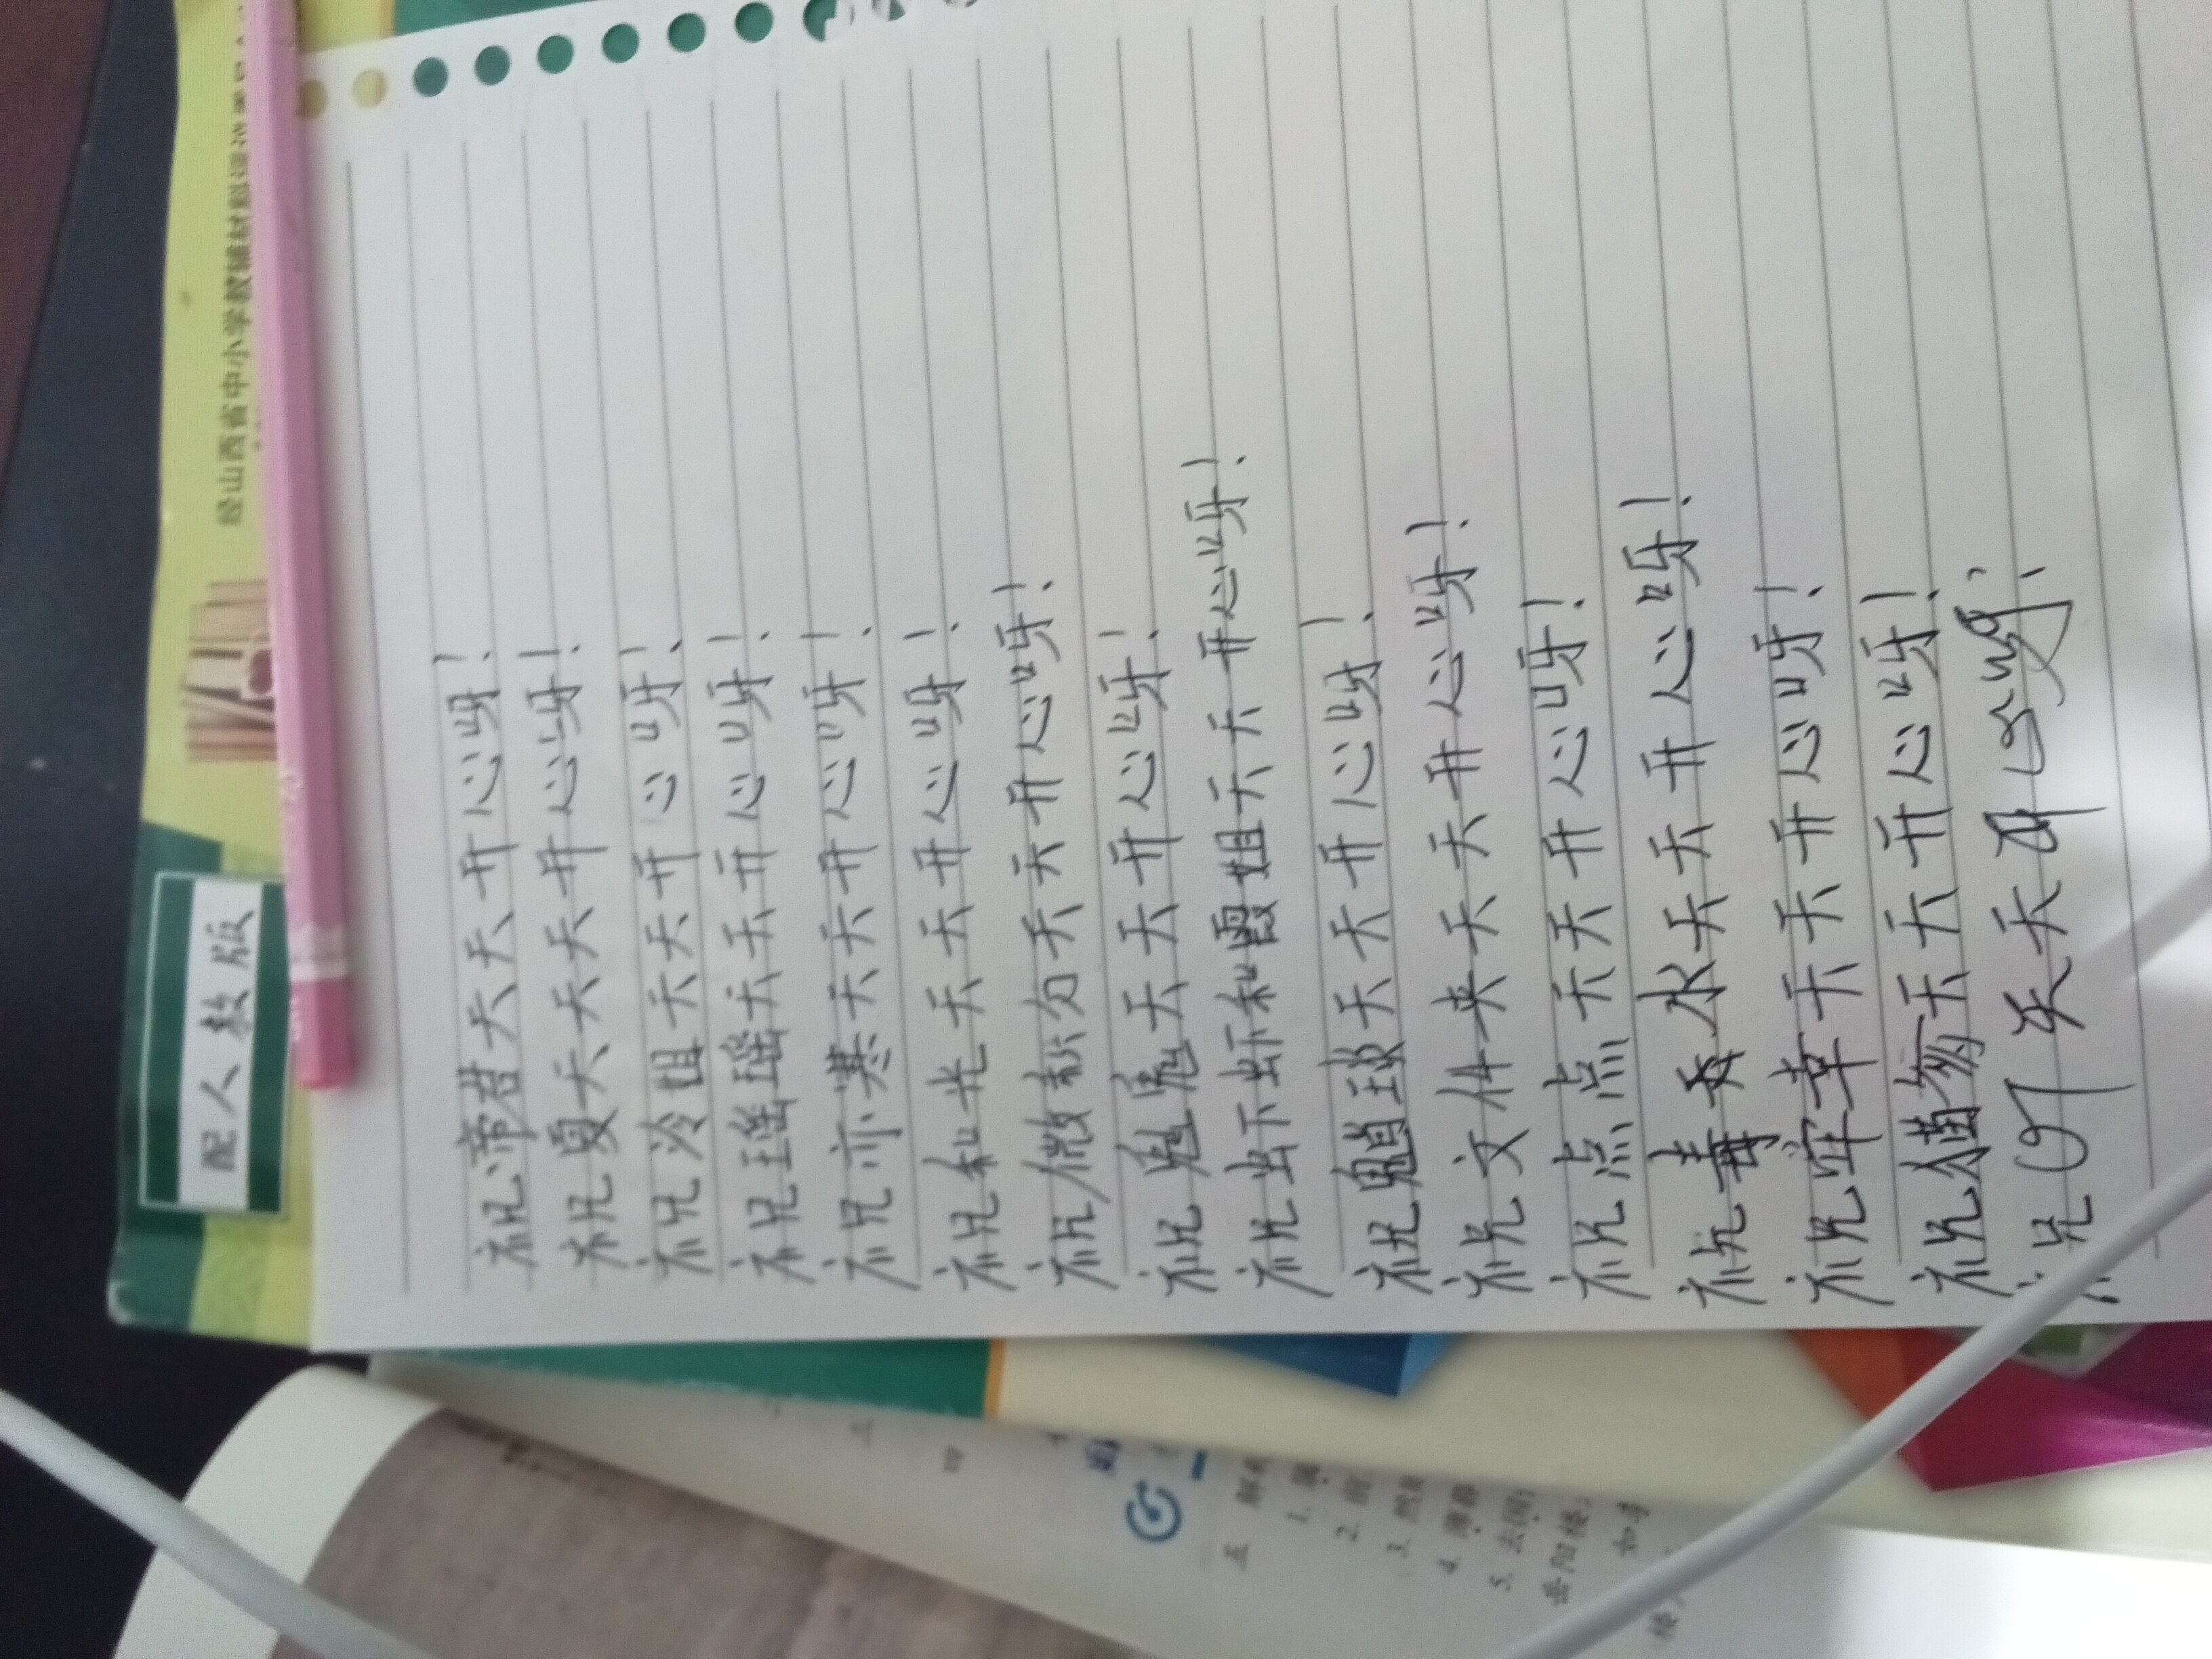 祝帝君天天开心呀!
祝夏天天天开心呀!
祝冷姐天天开心呀!
祝瑶瑶天天开心呀!
祝亦寒天天开心呀!
祝和光天天开心呀!
祝微积分天天开心呀!
祝魁鬼天天开心呀!
祝虫下虾和霞姐天天开心呀!
祝魈琰天天开心呀!
祝文件夹天天开心呀!
祝点点天天开心呀!
祝毒香水天天开心呀!
祝宰幸天天开心呀!
祝猫茒天天开心呀!
天天开心呀!
配人教版
经山西省中小学教辅材料
五
1.
2.
3. 然
4. 薄暮
5. 去国
岳阳楼